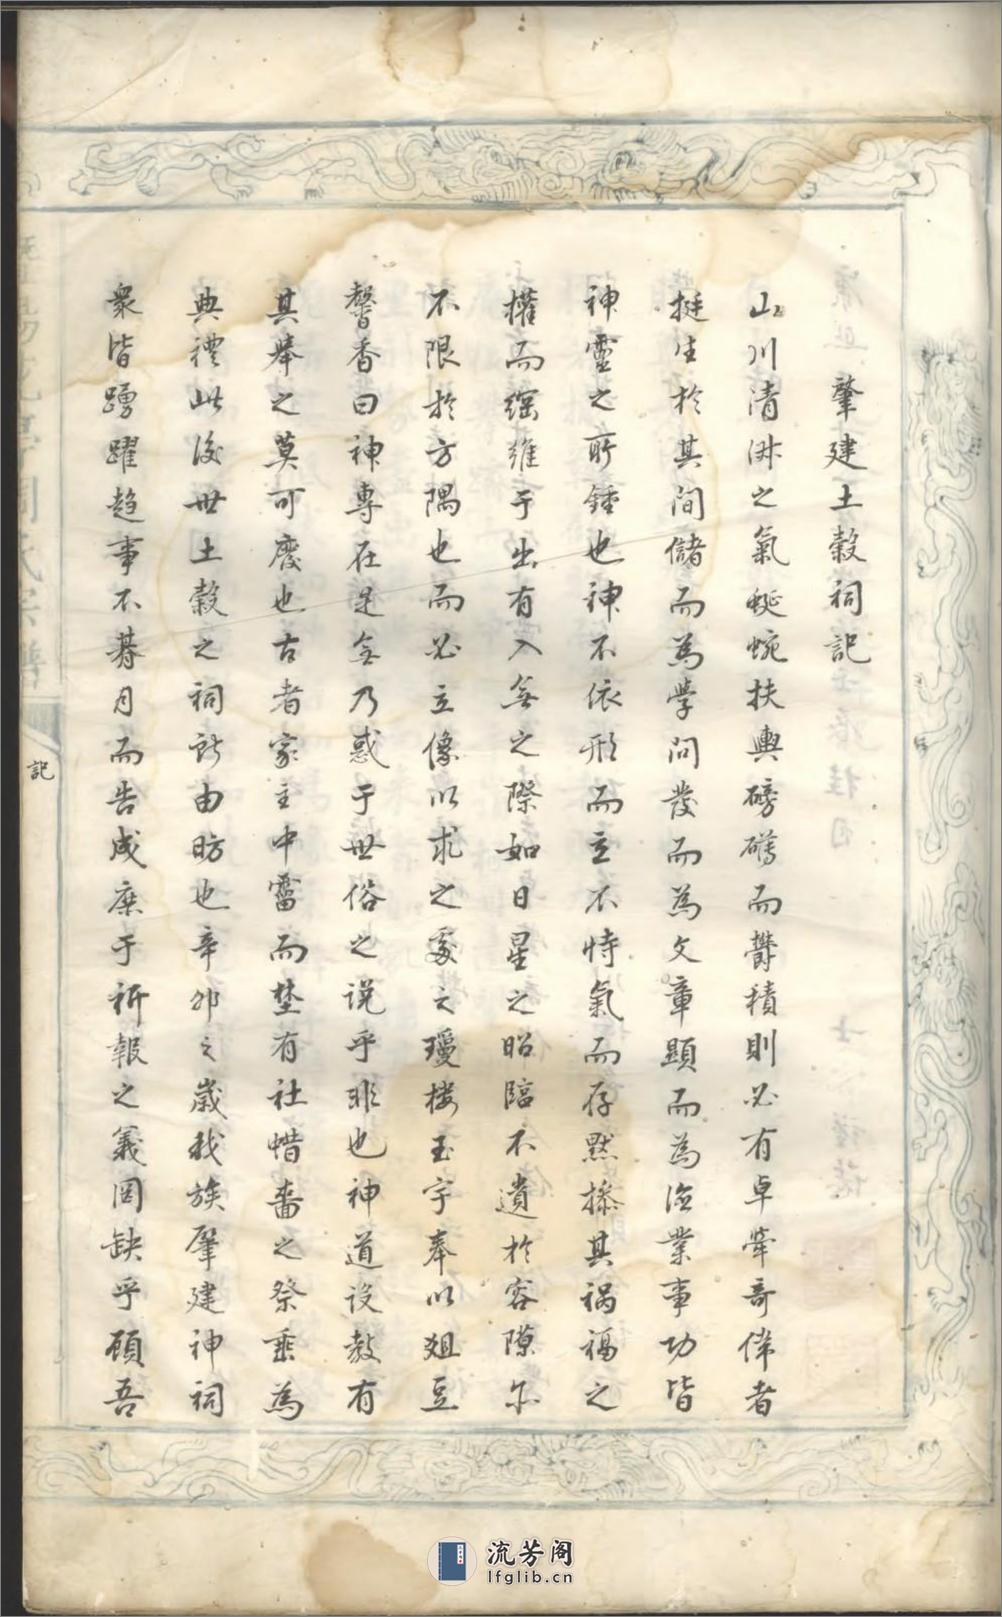 肇建土穀祠記
山川清淋之氣蜿蜿扶輿磅礴而欝積則必有卓犖奇偉者
挺生於其間儲而為學問發而為文章顯而為德業事功皆
神靈之所鍾也神不依形而立不恃氣而存默操其祸福之
權而綱維于出有入無之際如日星之昭臨不遺於容隙尔
不限於方隅也而必立像以求之處之瓊楼玉宇奉以爼豆
馨香曰神專在是無乃惑于世俗之说乎非也神道设教有
其舉之莫可廢也古者家主中霤而埜有社蜡嗇之祭垂為
典禮此後世土穀之祠所由昉也辛卯之歲我族肇建神祠
衆皆踴躍趋事不朞月而告成庶于祈報之義罔缺乎顾吾
記
流芳阁
lfglib.cn